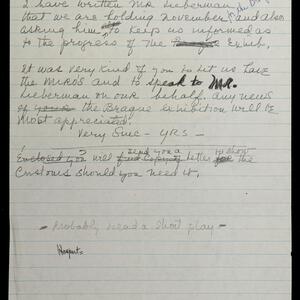 I have written Mr. Lieberman
that we are holding November, and also
asking him to keep us informed as
to the progress of The Exhib.
It was very kind of you to let us have
the Mirós and to speak to Mr.
Lieberman on our behalf. Any news
of your the Braque exhibition will be
most appreciated.
Very Sinc - YRS -
send you a to show
Enclosed you will find copy of letter for the
Customs should you need it.
- Probably need a short play -